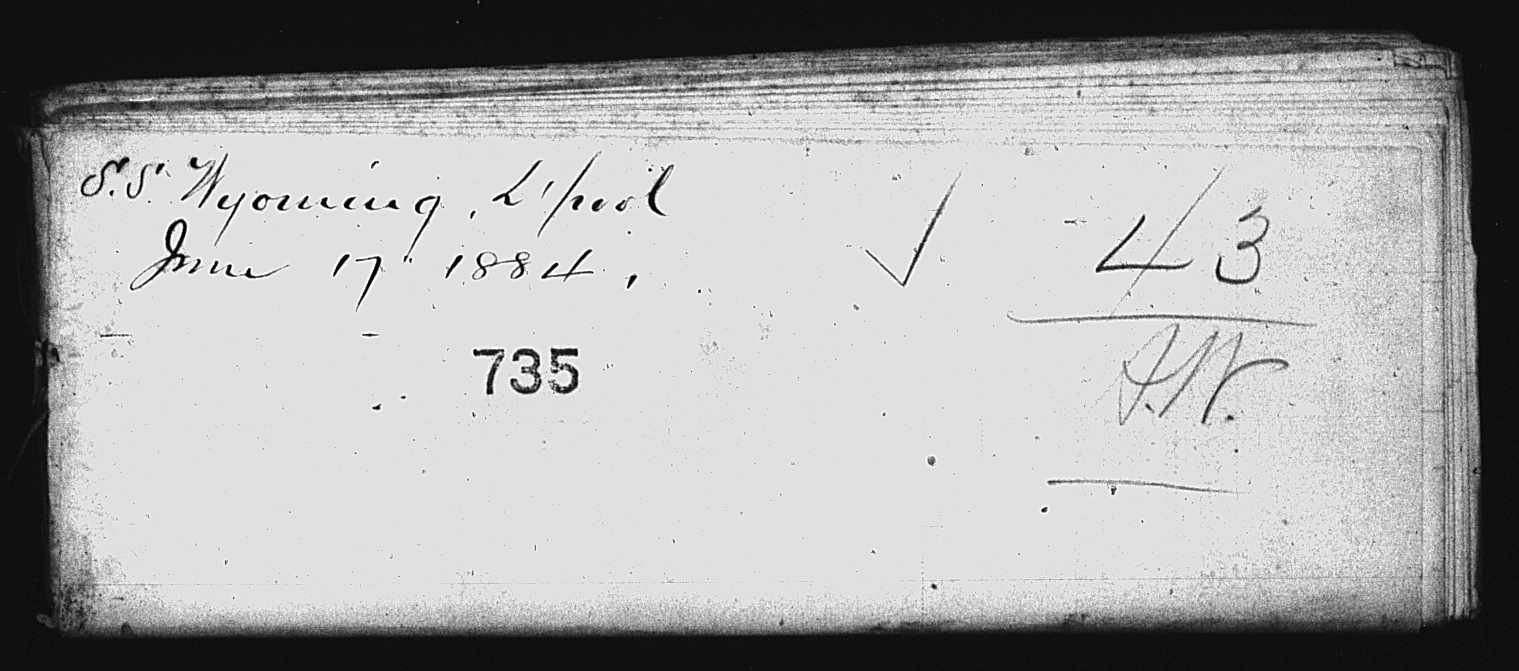 S.S. Wyoming, L'pool
June 17 1884.
43
735